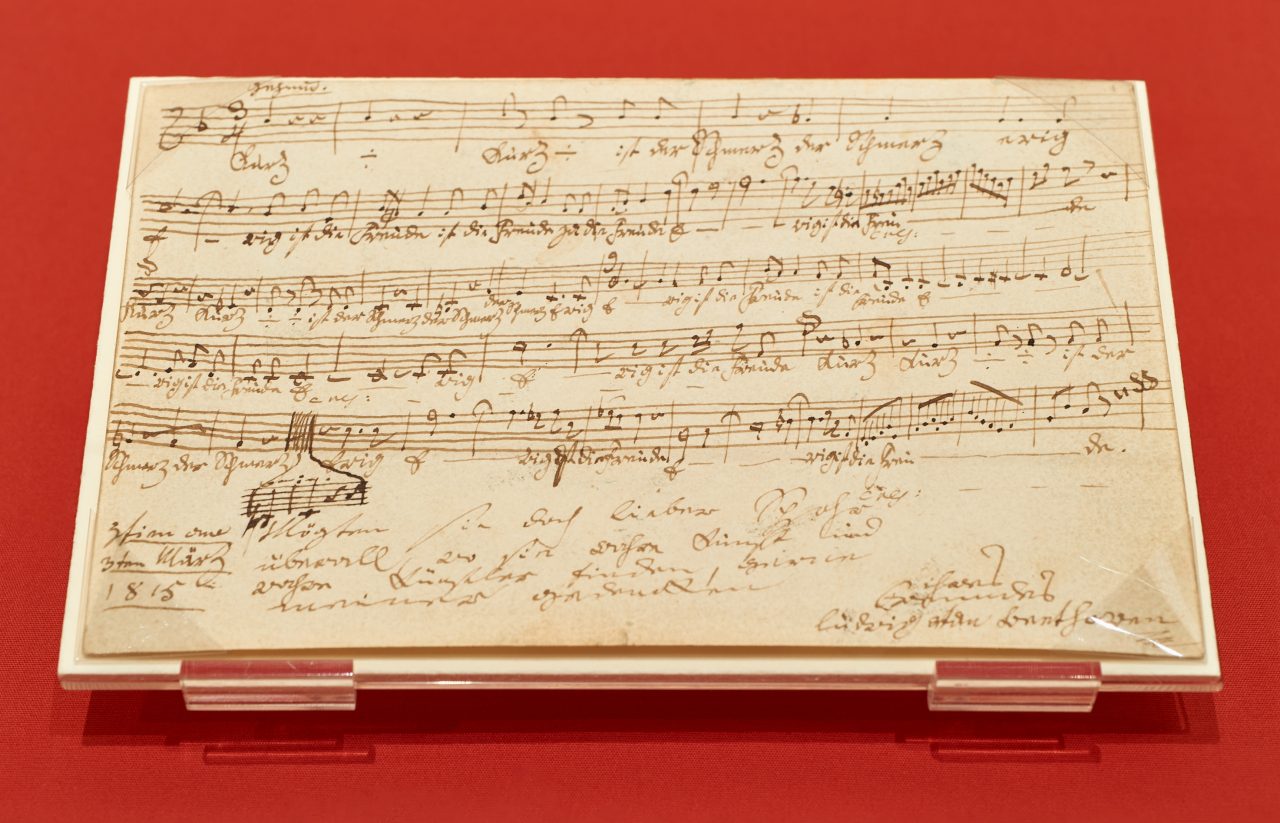 Kurz ÷ Kurz ÷ ist der Schmerz der Schmerz ewig
E — wig ist die Freude ist die Freude ja die Freude E — — wig ist die Freu — — de
Kurz Kurz ÷ ÷ ist der Schmerz der Schmerz der Schmerz Ewig E — wig ist die Freude ist die Freude E —
— wig ist die Freude E — — wig E — — wig ist die Freude Kurz Kurz ÷ ÷ ist der
Schmerz der Schmerz Ewig E — — wig ist die Freude E — — wig ist die Freu — — de.
3stim
3ten März
1815
Mögten sie doch lieber Spohr
überall, wo sie wahre Kunst und
wahre Künstler finden, gerne
meiner gedenken
ihres
Freundes
ludwig van Beethoven